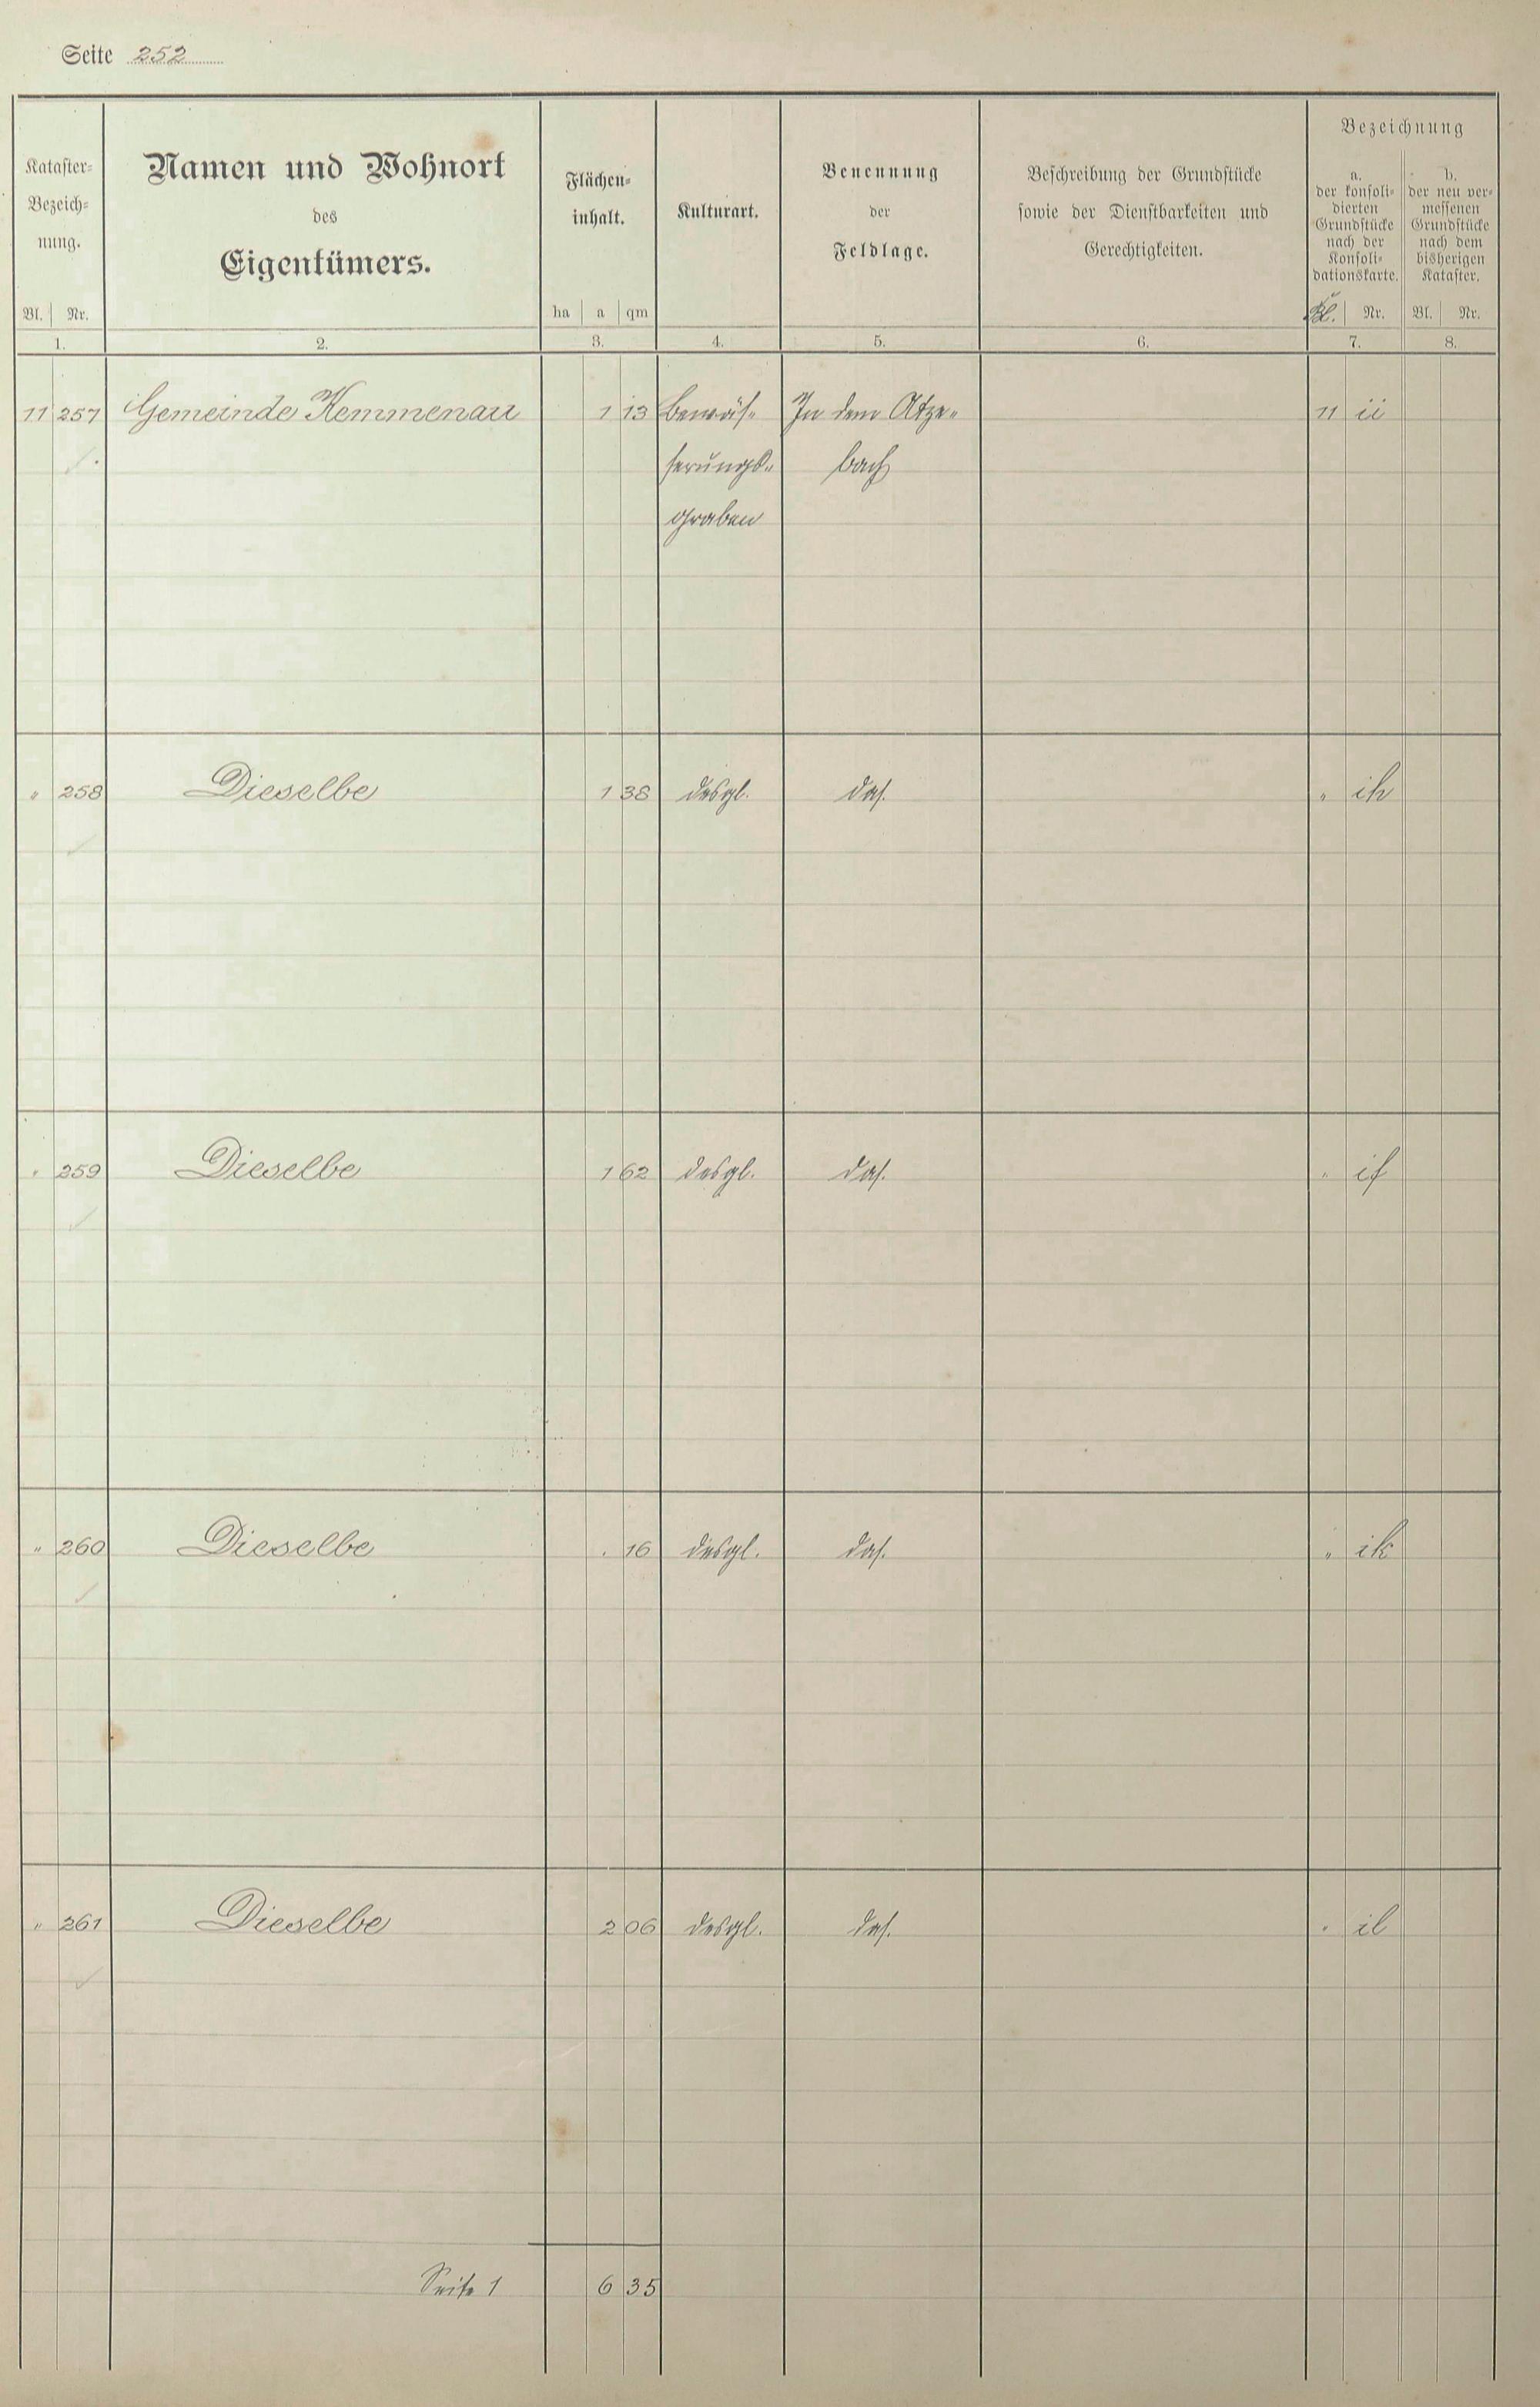 Seite 252
Kataster-
Bezeich-
nung.
Bl. Nr.
1.
Namen und Wohnort
des
Eigentümers.
2.
Flächen-
inhalt.
ha a qm
3.
Kulturart.
4.
Benennung
der
Feldlage.
5.
Beschreibung der Grundstücke
sowie der Dienstbarkeiten und
Gerechtigkeiten.
6.
Bezeichnung
a.
der konsoli-
dierten
Grundstücke
nach der
Konsoli-
dationskarte.
Nr.
7.
b.
der neu ver-
messenen
Grundstücke
nach dem
bisherigen
Kataster.
Bl. Nr.
8.
11 257 Gemeinde Kemmenau 1 13 Bewäs- In dem Atze- 11 ii
serungs- bach
graben
" 258 Dieselbe 1 38 desgl. das. " ih
" 259 Dieselbe 1 62 desgl. das. " if
" 260 Dieselbe . 16 desgl. das. " ik
" 261 Dieselbe 2 06 desgl. das. " il
Seite 1 6 35